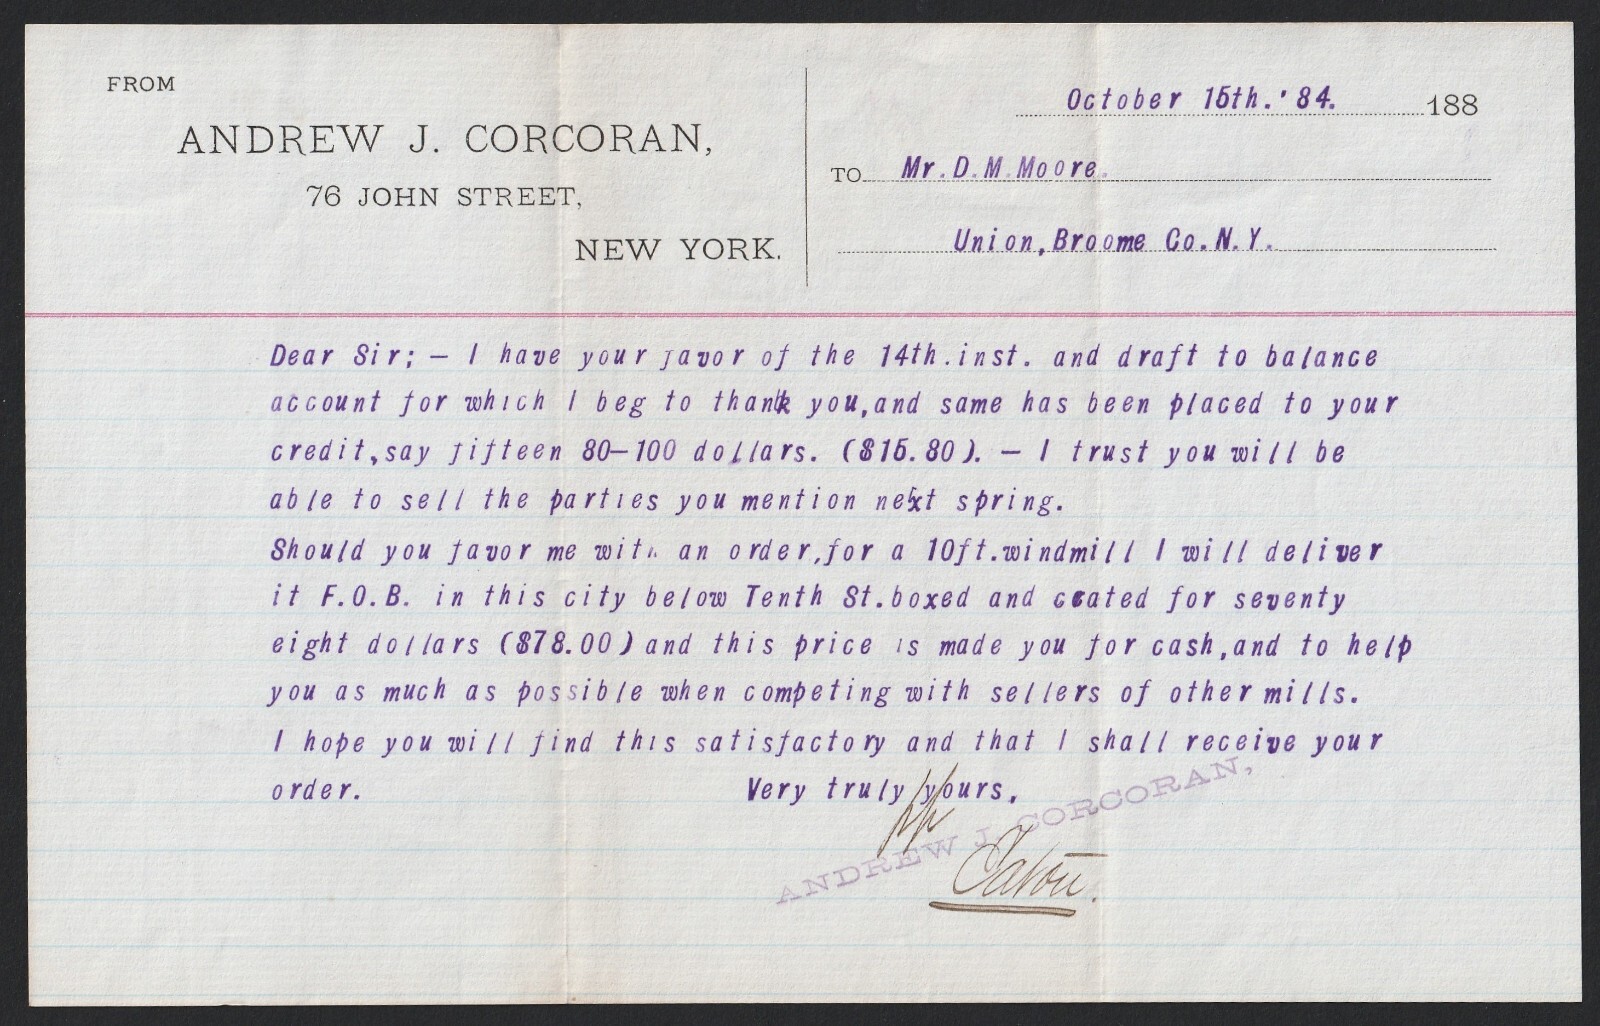 FROM
ANDREW J. CORCORAN,
76 JOHN STREET,
NEW YORK.
October 15th.'84. 188
TO Mr.D.M.Moore.
Union,Broome Co.N.Y.
Dear Sir; — I have your favor of the 14th.inst. and draft to balance
account for which I beg to thank you,and same has been placed to your
credit,say fifteen 80—100 dollars. ($15.80). — I trust you will be
able to sell the parties you mention next spring.
Should you favor me with an order,for a 10ft.windmill I will deliver
it F.O.B. in this city below Tenth St.boxed and crated for seventy
eight dollars ($78.00) and this price is made you for cash,and to help
you as much as possible when competing with sellers of other mills.
I hope you will find this satisfactory and that I shall receive your
order. Very truly yours,
pp
ANDREW J. CORCORAN,